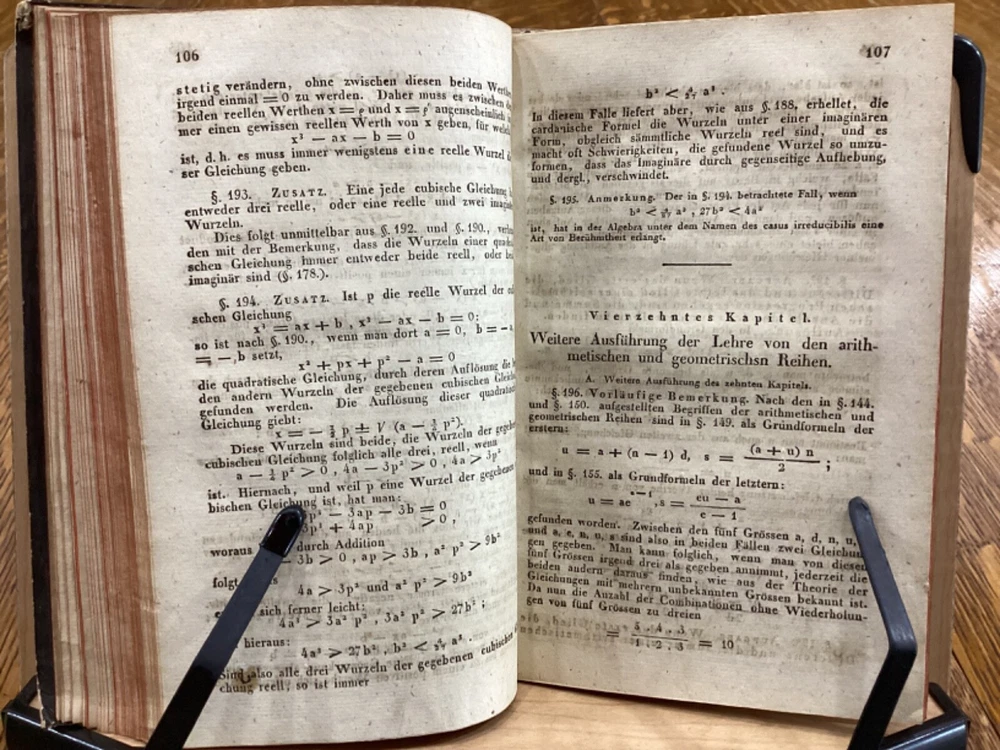 106
stetig verändern, ohne zwischen diesen beiden
irgend einmal = 0 zu werden. Daher muss es zwischen
beiden reellen Werthen x = ρ und x = ρ' augenscheinlich
mer einen gewissen reellen Werth von x geben, für
x³ — ax — b = 0
ist, d. h. es muss immer wenigstens eine reelle Wurzel
ser Gleichung geben.
§. 193. ZUSATZ. Eine jede cubische Gleichung
entweder drei reelle, oder eine reelle und zwei
Wurzeln.
Dies folgt unmittelbar aus §. 192. und §. 190.,
den mit der Bemerkung, dass die Wurzeln einer
schen Gleichung immer entweder beide reell, oder
imaginär sind (§. 178.).
§. 194. ZUSATZ. Ist p die reelle Wurzel der
schen Gleichung
x³ = ax + b, x³ — ax — b = 0;
so ist nach §. 190., wenn man dort a = 0, b = —
= —, b setzt,
x² + px + p² — a = 0
die quadratische Gleichung, durch deren Auflösung die
den andern Wurzeln der gegebenen cubischen
gefunden werden. Die Auflösung dieser
Gleichung giebt:
x = — ½ p ± √ (a — ¾ p²).
Diese Wurzeln sind beide, die Wurzeln der
cubischen Gleichung folglich alle drei, reell, wenn
a — ¾ p² > 0, 4a — 3p² > 0, 4a > 3p²
ist. Hiernach, und weil p eine Wurzel der
bischen Gleichung ist, hat man:
3p³ — 3ap — 3b = 0
3p³ + 4ap > 0,
woraus durch Addition
3b > 0, ap > 3b, a² p² > 9b²
folgt
4a > 3p² und a² p² > 9b²
sich ferner leicht:
4a³ > 3a² p², 3a² p² > 27b²;
hieraus:
4a³ > 27b², b² < 4/27 a³.
Sind also alle drei Wurzeln der gegebenen
chung reell, so ist immer
107
b² < 4/27 a³.
In diesem Falle liefert aber, wie aus §. 188. erhellet, die
cardanische Formel die Wurzeln unter einer imaginären
Form, obgleich sämmtliche Wurzeln reel sind, und es
macht oft Schwierigkeiten, die gefundene Wurzel so umzu-
formen, dass das Imaginäre durch gegenseitige Aufhebung,
und dergl., verschwindet.
§. 195. Anmerkung. Der in §. 194. betrachtete Fall, wenn
b² < 4/27 a³, 27b² < 4a³
ist, hat in der Algebra unter dem Namen des casus irreducibilis eine
Art von Berühmtheit erlangt.
Vierzehntes Kapitel.
Weitere Ausführung der Lehre von den arith-
metischen und geometrischsn Reihen.
A. Weitere Ausführung des zehnten Kapitels.
§. 196. Vorläufige Bemerkung. Nach den in §. 144.
und §. 150. aufgestellten Begriffen der arithmetischen und
geometrischen Reihen sind in §. 149. als Grundformeln der
erstern:
u = a + (n — 1) d, s = (a + u) n / 2;
und in §. 155. als Grundformeln der letztern:
u = ae^(n—1), s = (eu — a) / (e — 1)
gefunden worden. Zwischen den fünf Grössen a, d, n, u,
und a, e, n, u, s sind also in beiden Fällen zwei Gleichun
gen gegeben. Man kann folglich, wenn man von diesen
fünf Grössen irgend drei als gegeben annimmt, jederzeit die
beiden andern daraus finden, wie aus der Theorie der
Gleichungen mit mehrern unbekannten Grössen bekannt ist.
Da nun die Anzahl der Combinationen ohne Wiederholun-
gen von fünf Grössen zu dreien
= 5 . 4 . 3 / 1 . 2 . 3 = 10